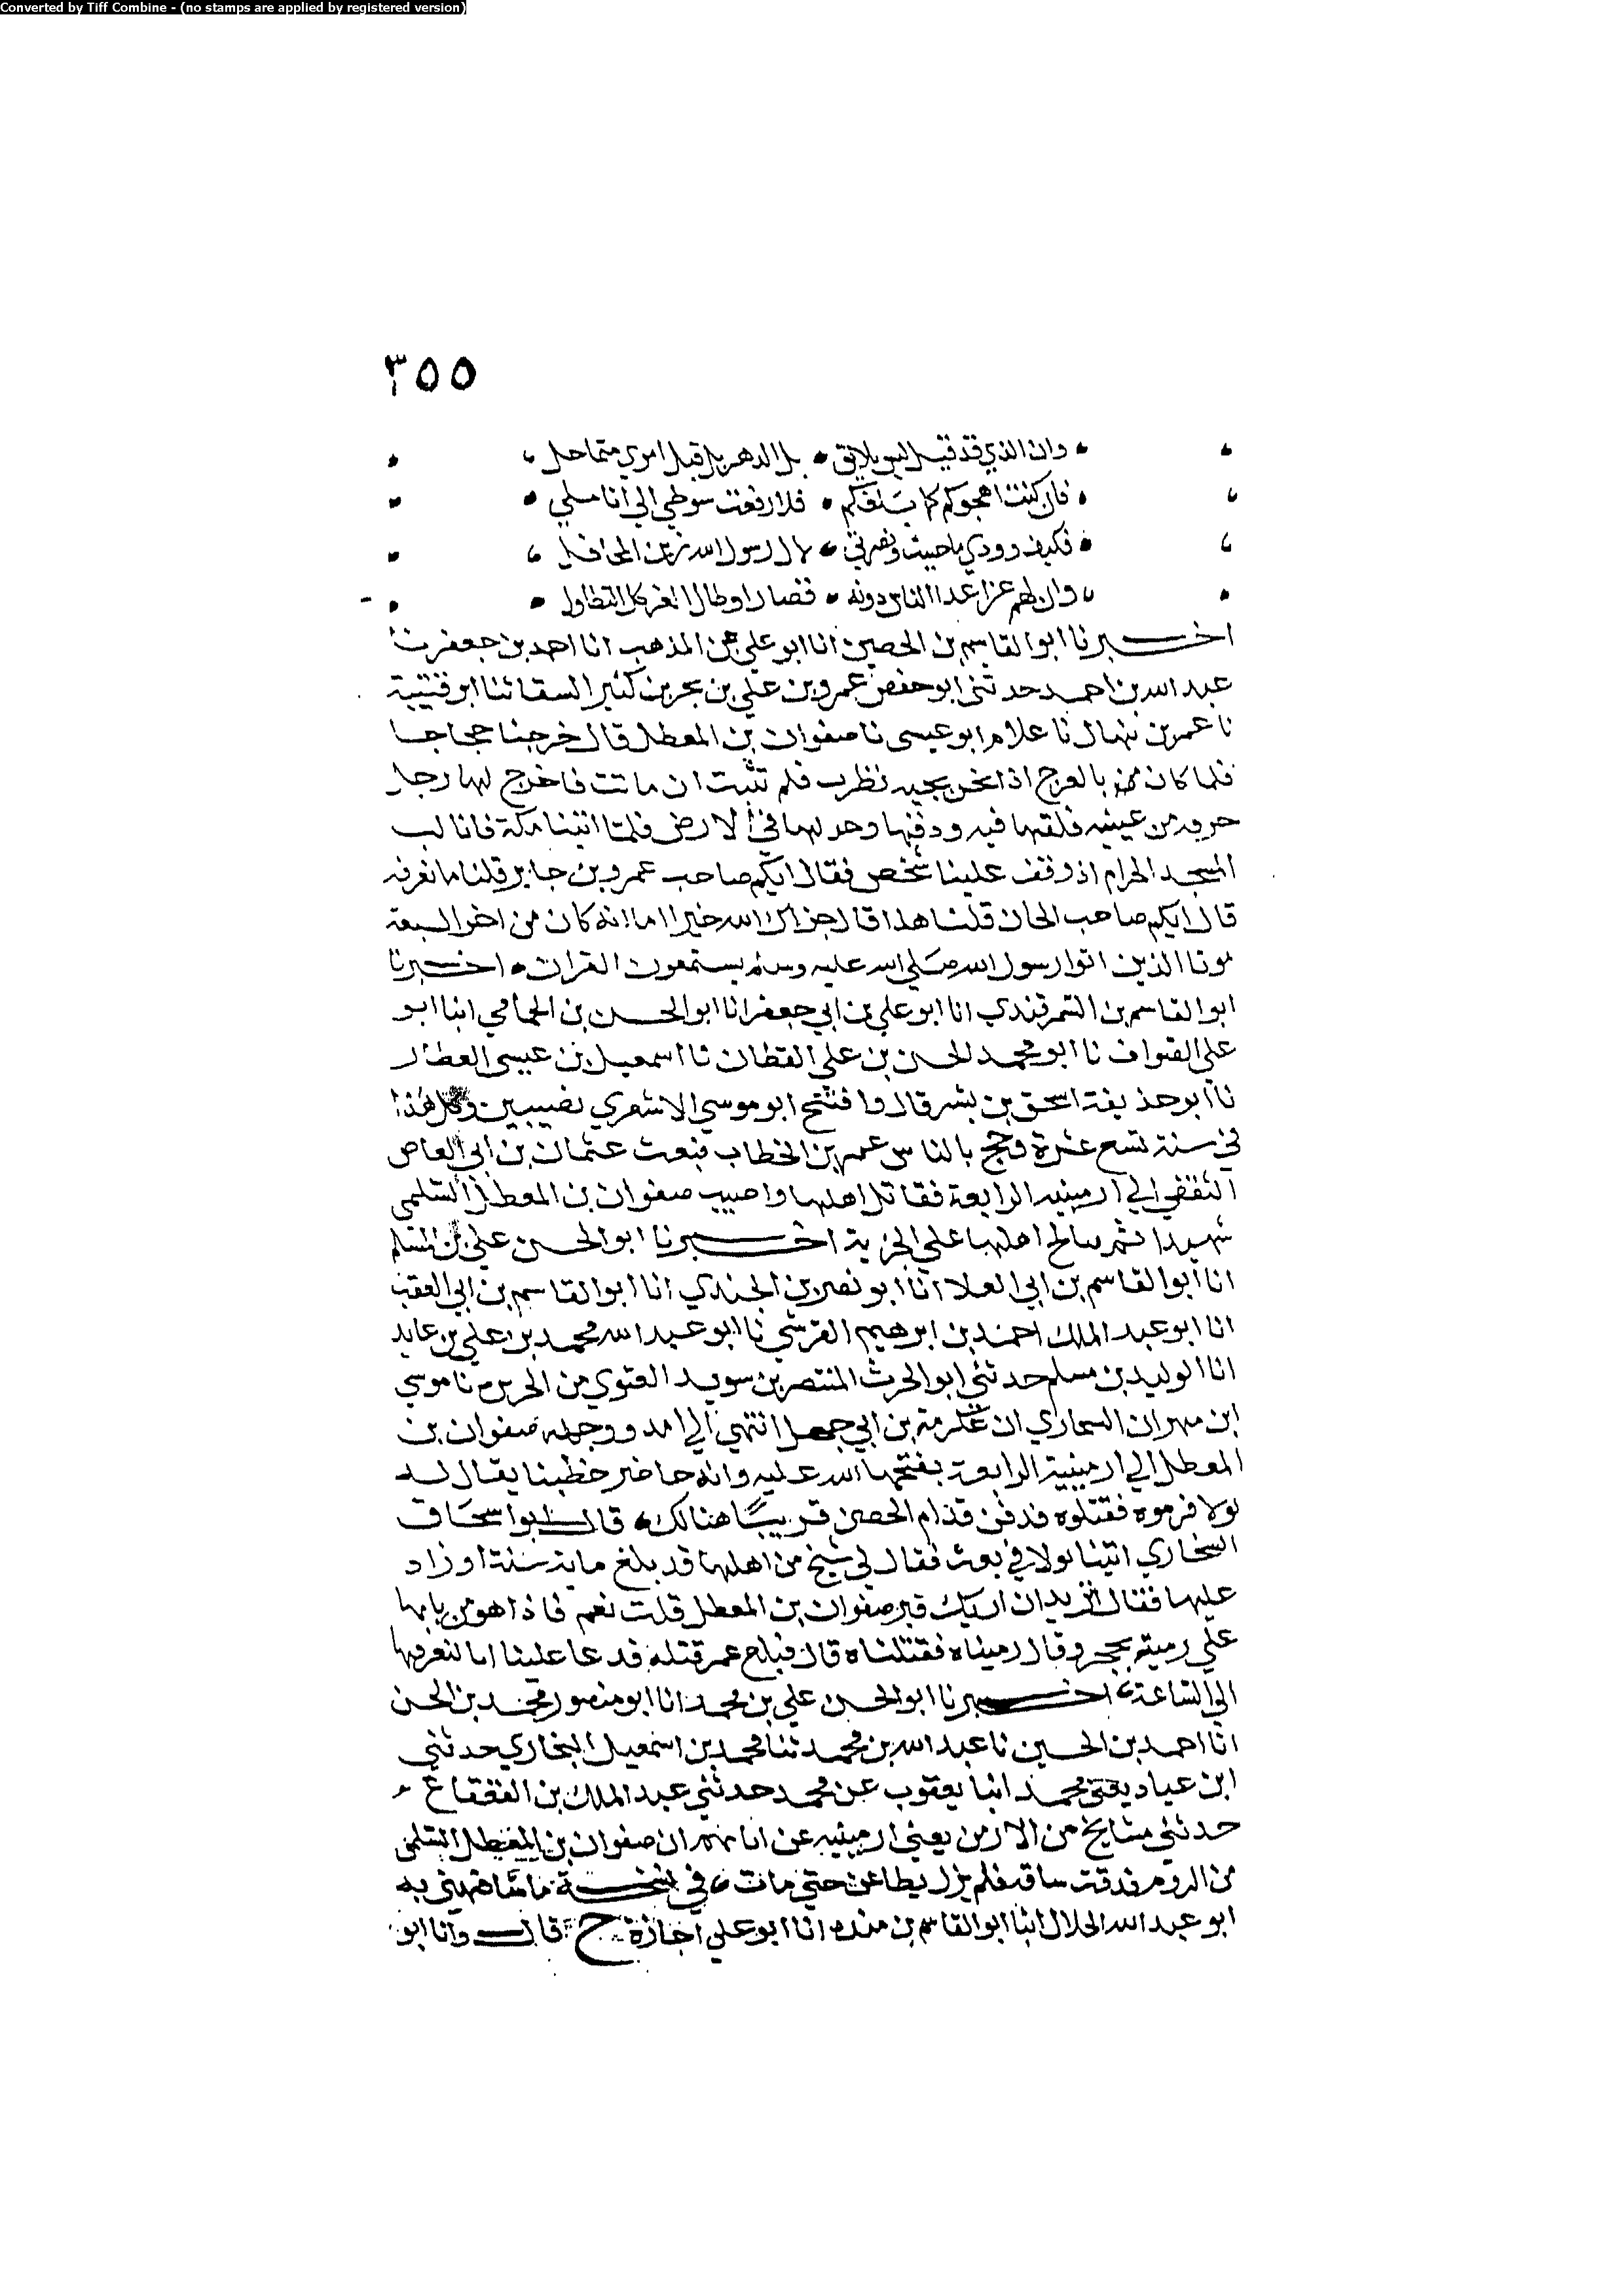 Converted by Tiff Combine - (no stamps are applied by registered version)
٣٥٥
وان الذي قد قيل ليس بلائق • بل الدهر بل قيل امري متماحل
فان كنت اهجوكم كما بتلغكم • فلا رفعت سوطي الي أناملي
فكيف وودي ما حييت ونصرتي • لال رسول الله زين المحافل
وان لهم عزا غدا الناس دونه • قصارا وطال العز كل التطاول
اخبرنا ابو القاسم بن الحصين انا ابو علي بن المذهب انا احمد بن جعفر نا
عبد الله بن احمد حدثني ابو حفص عمرو بن علي بن بحر بن كثير السقا ثنا ابو قتيبة
نا عمر بن نبهال نا علام ابو عيسى نا صفوان بن المعطل قال خرجنا حجاجا
فلما كان بالعرج اذا نحن بحيه نظرب فلم تثبت ان ماتت فاخرج لها رجل
حرقه من عيبته فلقها فيه ودفنها وحد لها في الارض فلما اتينا مكة فانا لب
المسجد الحرام اذ وقف علينا شخص فقال ايكم صاحب عمرو بن جابر قلنا ما نعرفه
قال ايكم صاحب الحان قلنا هذا قال جزاك الله خيرا اما انه كان من اخر السبعة
موتا الذين اتوا رسول الله صلي الله عليه وسلم يستمعون القران • اخبرنا
ابو القاسم بن السمرقندي انا ابو علي بن ابي جعفر انا ابو الحسن بن الحمامي ابنا ابو
علي الصواف نا ابو محمد الحسن بن علي القطان نا اسمعيل بن عيسى العطار
نا ابو حذيفة اسحق بن بشر قال وافتتح ابو موسي الاشعري نصيبين وكل هذا
في سنة تسع عشرة وحج بالناس عمر بن الخطاب فبعث عثمان بن ابي العاص
الثقفي الي ارمينيه الرابعة فقاتل اهلها واصيب صفوان بن المعطل السلمي
شهيدا ثم صالح اهلها علي الجزية اخبرنا ابو الحسن علي بن المسلم
انا ابو القاسم بن ابي العلا انا ابو نصر بن الجندي انا ابو القاسم بن ابي العقب
انا ابو عبد الملك احمد بن ابرهيم القرشي نا ابو عبد الله محمد بن علي بن عايد
انا الوليد بن مسلم حدثني ابو الحرث المنتصر بن سويد الغنوي من نا موسي
ابن مهران السحاري ان عكرمة بن ابي جهل انتهي الي امد ووجهه صفوان بن
المعطل الي ارمينية الرابعة بفتحها الله عليه وانه حاضر حصنا يقال له
بولا فرموه فقتلوه فدفن قدام الحصن قريبا هنالك • قال ابو اسحاق
السحاري اتينا بولا في بعث فقال لي شيخ من اهلها قد بلغ ماية سنة او زاد
عليها فقال اتريد ان اريك قبر صفوان بن المعطل قلت نعم فاذا هو من بابها
علي رميته بحجر وقال رميناه فقتلناه قال فبلغ عمر قتله فدعا علينا انا لنعرفها
الي الساعة اخبرنا ابو الحسن علي بن محمد انا ابو منصور محمد بن الحسن
انا احمد بن الحسين نا عبد الله بن محمد ثنا محمد بن اسمعيل البخاري حدثني
ابن عباد يعني محمد ابنا يعقوب عن محمد حدثني عبد الملك بن القعقاع
حدثني مشايخ من الارمن يعني ارمينيه عن ابا ان صفوان بن المعطل السلمي
من الروم فدقت ساقه فلم يزل يطاعن حتي مات في نسخة ما شافهني به
ابو عبد الله الخلال ابنا ابو القاسم بن منده انا ابو علي اجازة ح قال وانا ابو